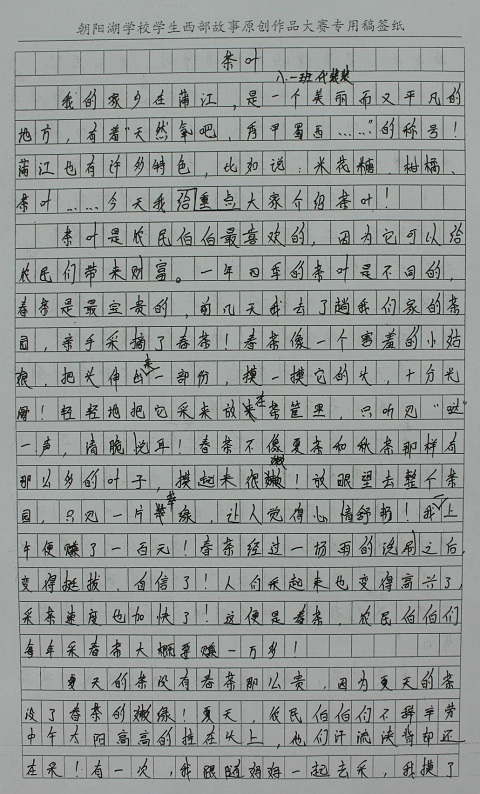 朝阳湖学校学生西部故事原创作品大赛专用稿签纸
茶叶
八.一班
我的家乡在蒲江，是一个美丽而又平凡的
地方，有着“天然氧吧，秀甲蜀西……”的称号！
蒲江也有许多特色，比如说：米花糖、柑橘、
茶叶……今天我给重点大家介绍茶叶！
茶叶是农民伯伯最喜欢的，因为它可以给
农民们带来财富。一年四季的茶叶是不同的，
春茶是最宝贵的，前几天我去了趟我们家的茶
园，亲手采摘了春茶！春茶像一个害羞的小姑
娘，把头伸出来一部份，摸一摸它的头，十分光
滑！轻轻地把它采来放在茶筐里，只听见“哒”
一声，清脆悦耳！春茶不像夏茶和秋茶那样有
那么多的叶子，摸起来很嫩！放眼望去整个茶
园，只见一片翠绿，让人觉得心情舒畅！我上
午便赚了一百元！春茶经过一场雨的洗刷之后，
变得挺拔，自信了！人们采起来也变得高兴了，
采茶速度也加快了！这便是春茶，农民伯伯们
每年采春茶大概要赚一万多！
夏天的茶没有春茶那么贵，因为夏天的茶
没了春茶的嫩绿！夏天，农民伯伯们不辞辛劳
中午太阳高高的挂在头上，他们汗流浃背却还
在采！有一次，我跟随妈妈一起去采，我摸了